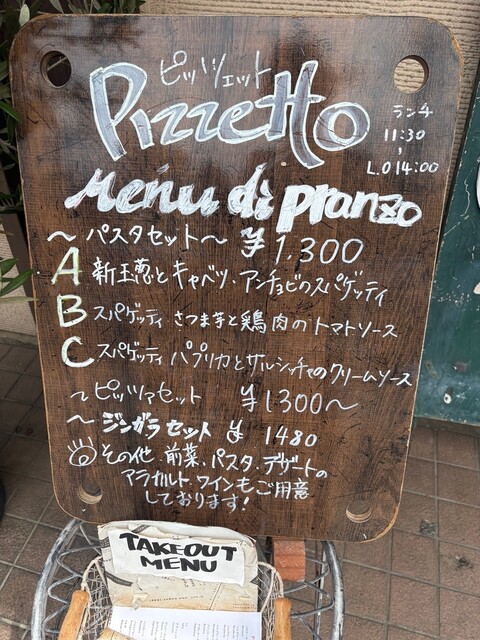 ピッツェット
Pizzetto
ランチ
11:30
〜
L.O 14:00
Menu di pranzo
〜パスタセット〜 ¥1,300
A 新玉葱とキャベツ、アンチョビのスパゲッティ
B スパゲッティ さつま芋と鶏肉のトマトソース
C スパゲッティ パプリカとサルシッチャのクリームソース
〜ピッツァセット ¥1300〜
〜ジンガラセット ¥1480
その他、前菜、パスタ、デザートの
アラカルト、ワインもご用意
しております!
TAKEOUT
MENU